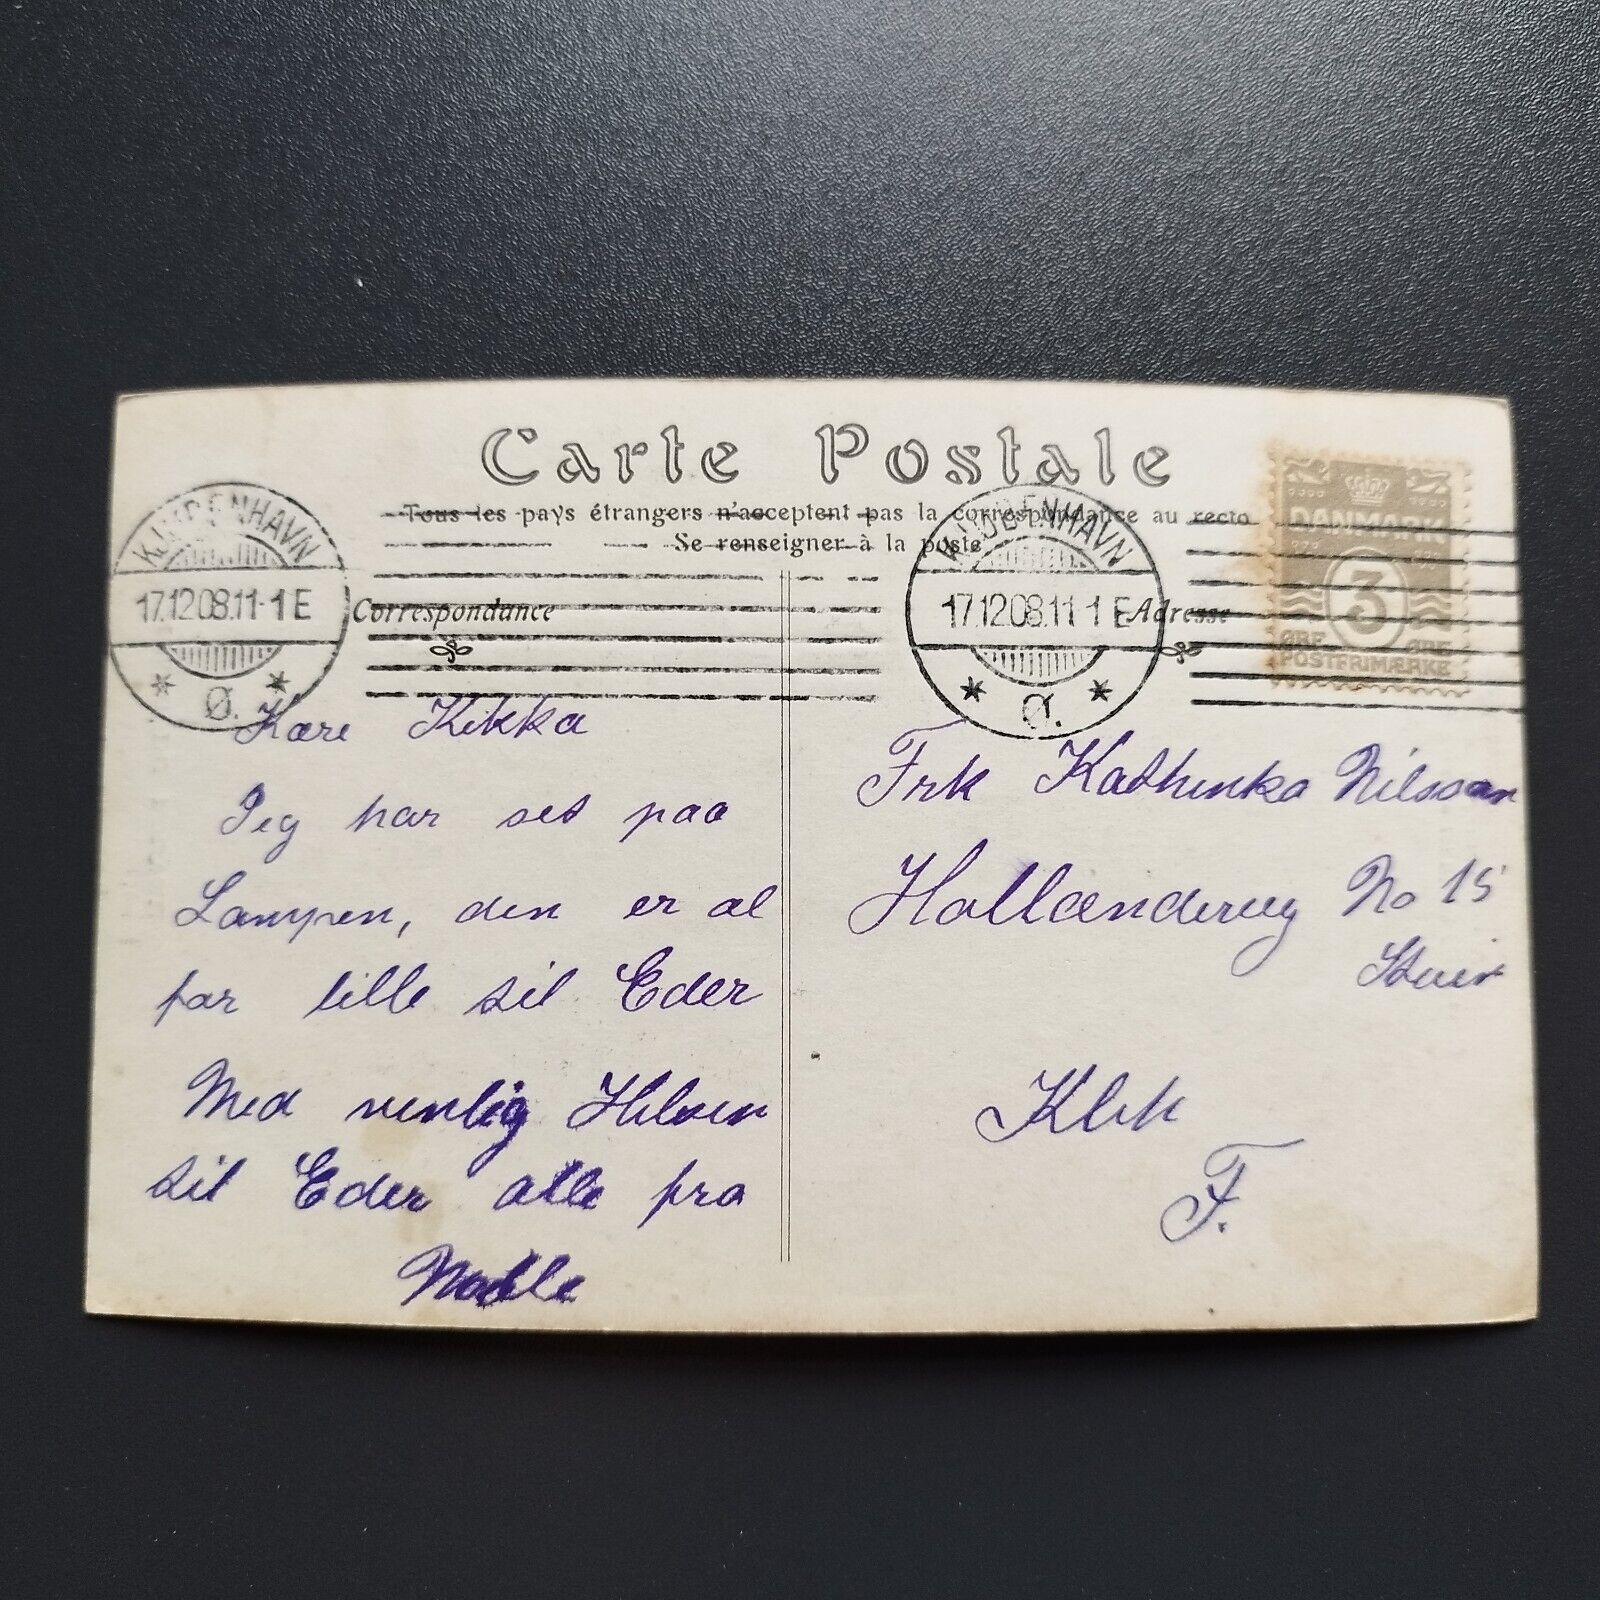 Carte Postale
Tous les pays étrangers n'acceptent pas la correspondance au recto
Se renseigner à la poste
KJØBENHAVN
17.12.08.11-1 E
Ø.
Correspondance
KJØBENHAVN
17.12.08.11-1 E
Ø.
Adresse
DANMARK
3
ØRE ØRE
POSTFRIMÆRKE
Kære Kikka
Jeg har set paa
Lampen, den er al
for lille til Eder
Med venlig Hilsen
til Eder alle fra
Frk Kathinka Nilsson
Hollændervej No 15
Stuen
Kbh
F.